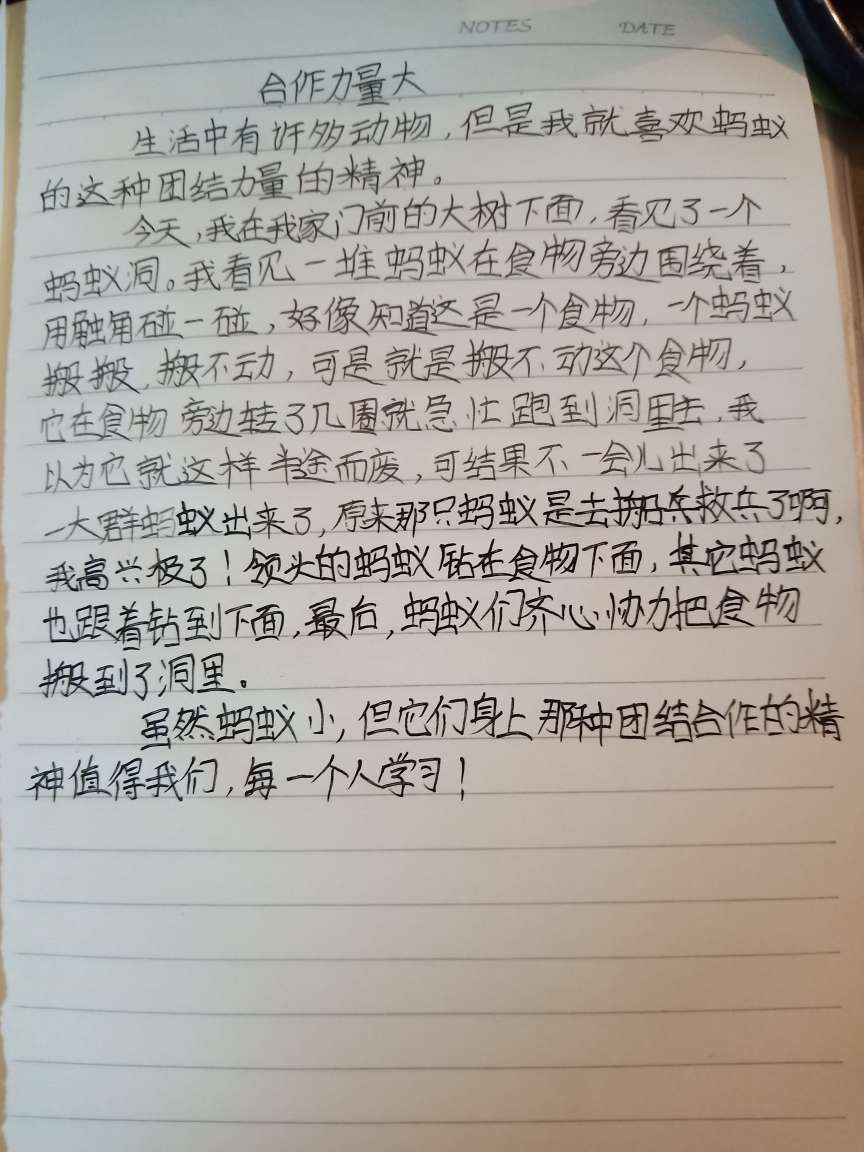 NOTES DATE
合作力量大
生活中有许多动物，但是我就喜欢蚂蚁
的这种团结力量的精神。
今天，我在我家门前的大树下面，看见了一个
蚂蚁洞。我看见一堆蚂蚁在食物旁边围绕着，
用触角碰一碰，好像知道这是一个食物，一个蚂蚁
搬搬，搬不动，可是就是搬不动这个食物，
它在食物旁边转了几圈就急忙跑到洞里去，我
以为它就这样半途而废，可结果不一会儿出来了
一大群蚂蚁出来了，原来那只蚂蚁是去搬兵救兵了啊，
我高兴极了！领头的蚂蚁钻在食物下面，其它蚂蚁
也跟着钻到下面，最后，蚂蚁们齐心协力把食物
搬到了洞里。
虽然蚂蚁小，但它们身上那种团结合作的精
神值得我们，每一个人学习！